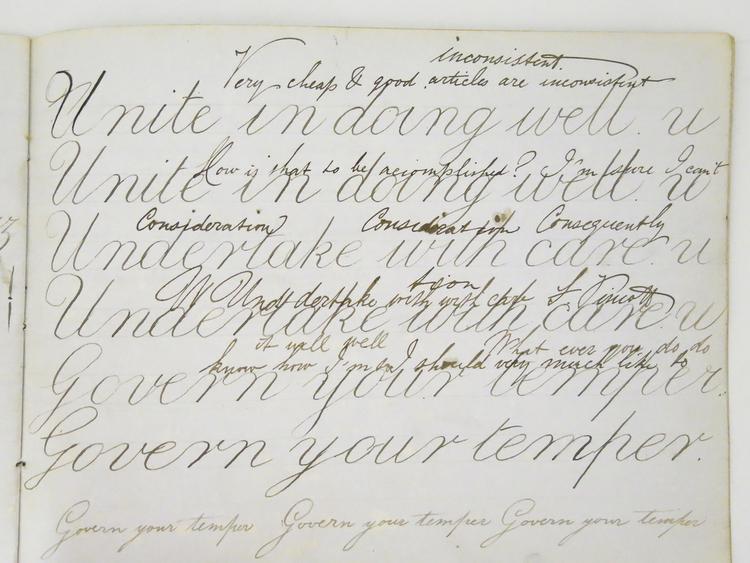 inconsistent.
Very cheap & good articles are inconsistent
Unite in doing well. u
How is that to be accomplished? I'm shore I can't
Unite in doing well. u
Consideration Consideration Consequently
Undertake with care. u
tion
W Undertake with with care
Undertake with care. u
it well well What ever you do, do
know how I'm I should very much like to
Govern your temper.
Govern your temper.
Govern your temper Govern your temper Govern your temper